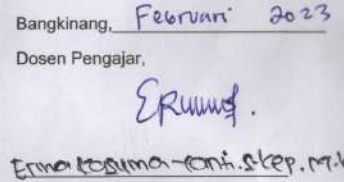 Bangkinang, Februari 2023
Dosen Pengajar,
Erma Kusuma yanti. S.kep. M.